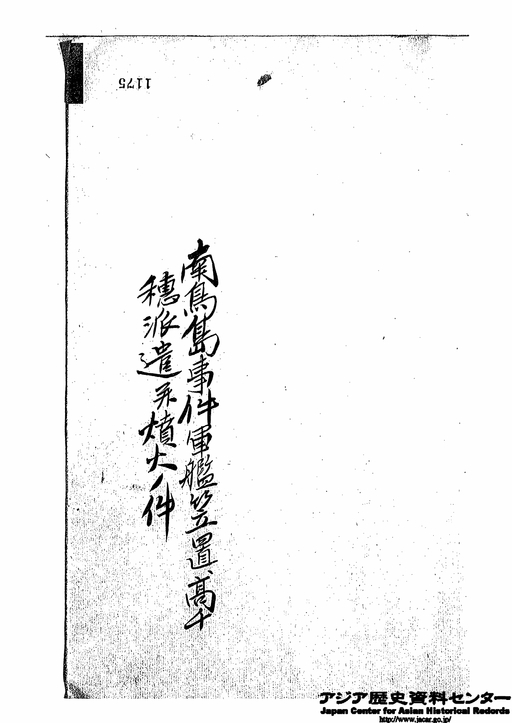 1175
南鳥島事件軍艦笠置、高千
穂派遣并噴火ノ件
アジア歴史資料センター
Japan Center for Asian Historical Records
http://www.jacar.go.jp/